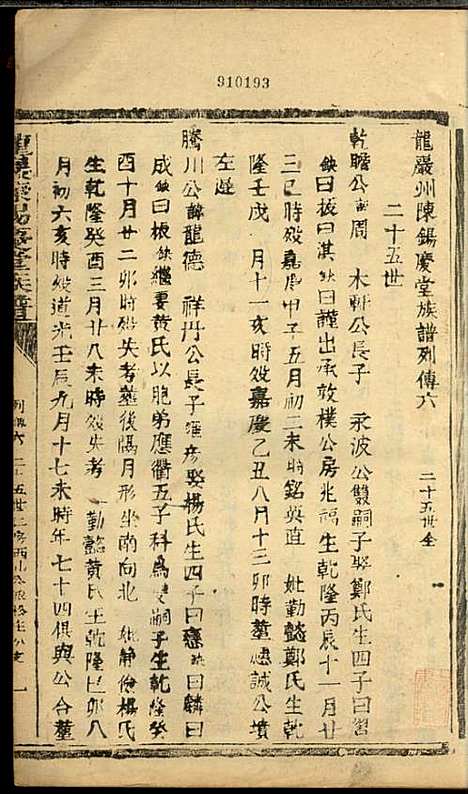 910193
龍嚴州陳錫慶堂族譜列傳六 二十五世全
二十五世
乾瞻公 周 木軒公長子 永波公雙嗣子娶鄭氏生四子曰習
缺曰振曰淇缺曰謹出承敦樸公房兆福生乾隆丙辰十一月廿
三巳時歿嘉慶甲子五月初二未時銘英直 妣勤懿鄭氏生乾
隆壬戌 月十一亥時歿嘉慶乙丑八月十三卯時葬 誠公墳
左邊
騰川公諱龍德 祥丹公長子 娶楊氏生四子曰 曰麟曰
成缺曰根缺繼妻黃氏以胞弟應衢五子科為 嗣子生乾隆癸
酉十月廿二卯時歿失考葬後隔月形坐南向北 妣靜 楊氏
生乾隆癸酉三月廿八未時歿失考 勤懿黃氏生乾隆己卯八
月初六亥時歿道光壬辰九月十七未時年七十四俱與公合葬
列傳六 二十五世